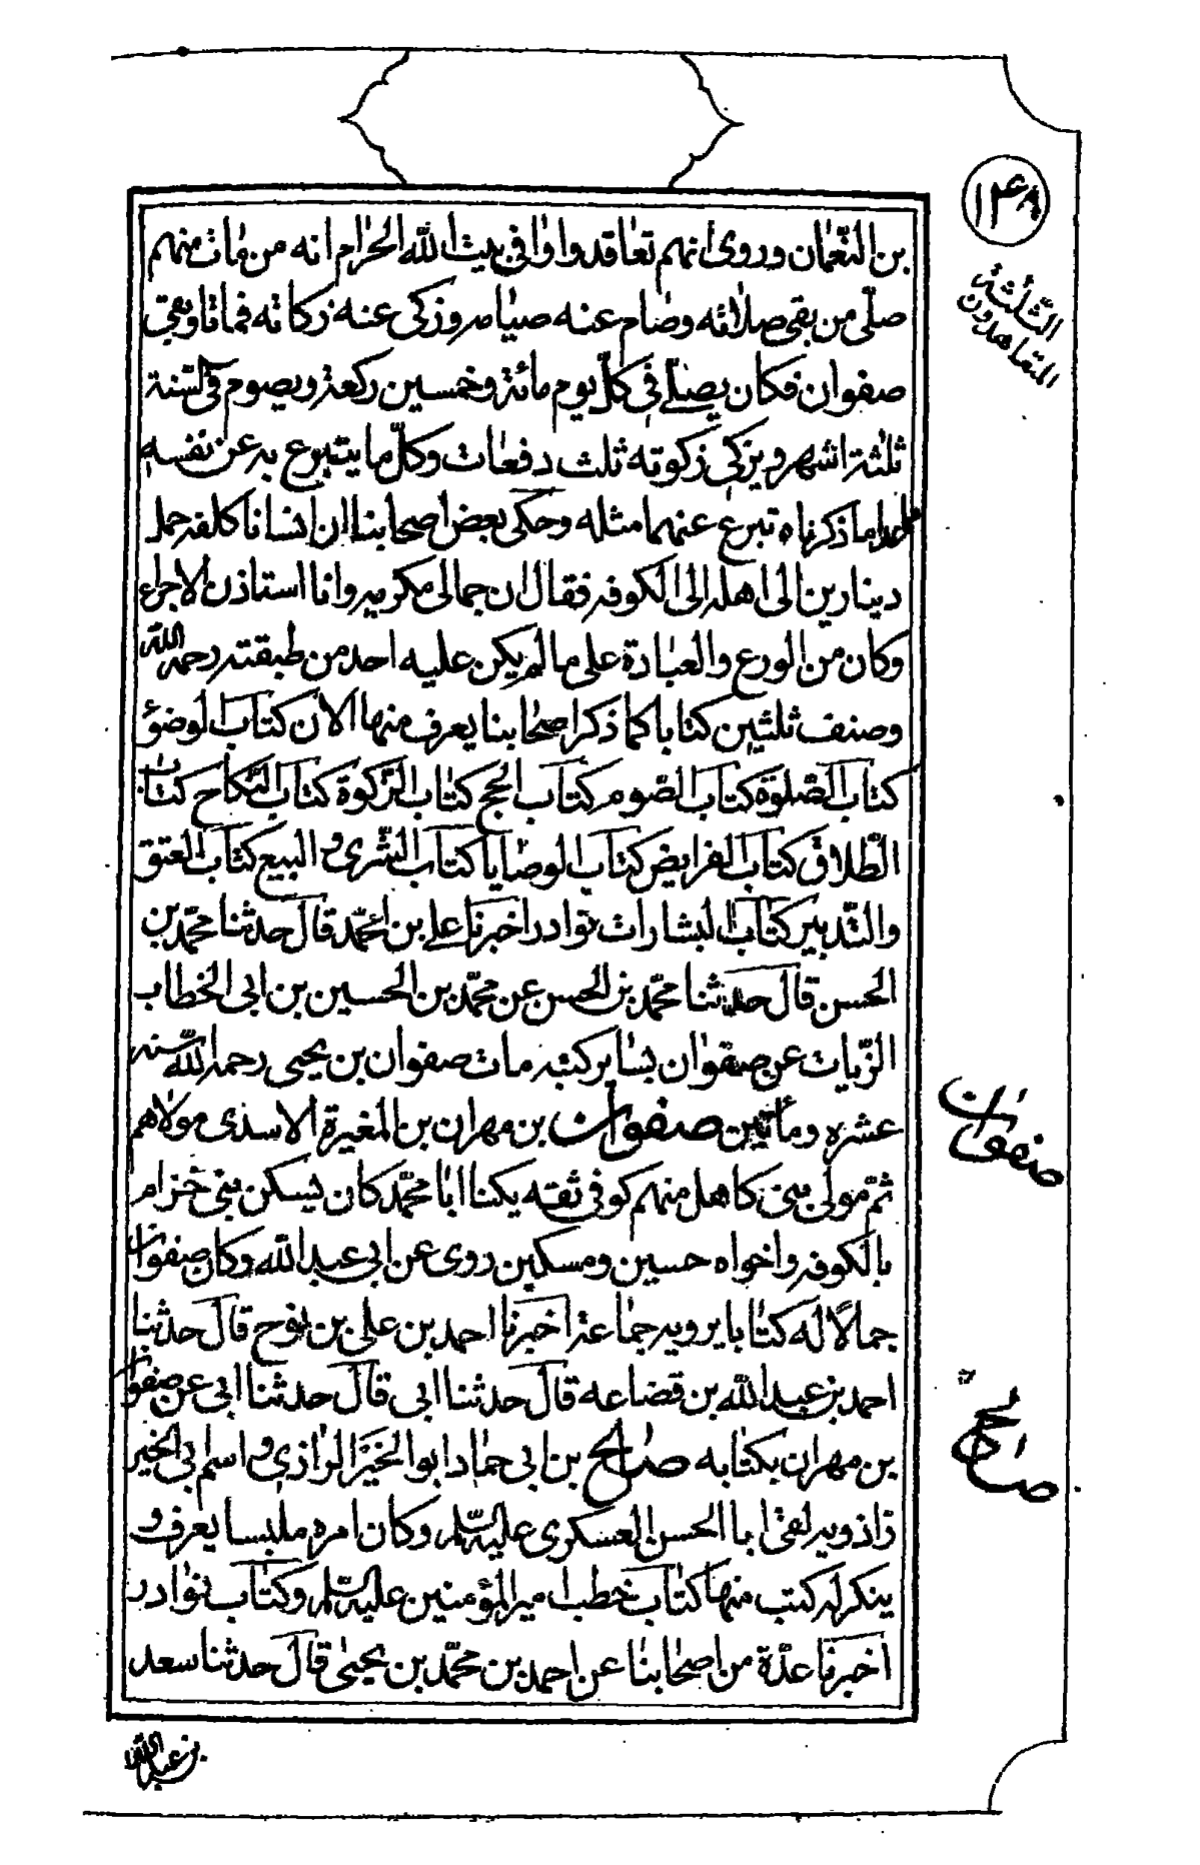 ١٤٨
الثّلثة
المتعاهدون
بن النّعمان وروى انهم تعاقدوا فى بيت الله الحرام انه من مات منهم
صلّى من بقى صلاته وصام عنه صيامه وزكى عنه زكاته فماتا وبقى
صفوان فكان يصلّى فى كلّ يوم مائة وخمسين ركعة ويصوم فى السّنة
ثلثة اشهر ويزكى زكوته ثلث دفعات وكلّ ما يتبرع به عن نفسه
ما ذكرناه تبرع عنهما مثله وحكى بعض اصحابنا ان انسانا كلفه حمل
دينارين الى اهله الى الكوفه فقال ان جمالى مكريه وانا استاذن الاجراء
وكان من الورع والعبادة على ما لم يكن عليه احد من طبقته رحمه الله
وصنف ثلثين كتابا كما ذكر اصحابنا يعرف منها الآن كتاب الوضوء
كتاب الصّلوة كتاب الصّوم كتاب الحج كتاب الزّكوة كتاب النّكاح كتاب
الطّلاق كتاب الفرايض كتاب الوصايا كتاب الشّرى و البيع كتاب العتق
والتّدبير كتاب البشارات نوادر اخبرنا على بن احمّد قال حدثنا محمّد بن
الحسن قال حدثنا محمّد بن الحسن عن محمّد بن الحسين بن ابى الخطاب
الزّيات عن صفوان بسائر كتبه مات صفوان بن يحيى رحمه الله سنه
عشره ومأتين صفوان بن مهران بن المغيرة الاسدى مولاهم
ثمّ مولى بنى كاهل منهم كوفى ثقه يكنا ابا محمّد كان يسكن بنى حزام
بالكوفه واخواه حسين ومسكين روى عن ابى عبد الله وكان صفوان
جمالاً له كتابا يرويه جماعة اخبرنا احمد بن على بن نوح قال حدثنا
احمد بن عبد الله بن قضاعه قال حدثنا ابى قال حدثنا ابى عن صفوان
بن مهران بكتابه صالح بن ابى حماد ابو الخير الرّازى و اسم ابى الخير
زاذويه لقى ابا الحسن العسكرى عليه السّلم وكان امره ملبسا يعرف و
ينكر له كتب منها كتاب خطب امير المؤمنين عليه السّلم وكتاب نوادر
اخبرنا عدّة من اصحابنا عن احمد بن محمّد بن يحيى قال حدثنا سعد
صفوان
صالح
بن عبد الله